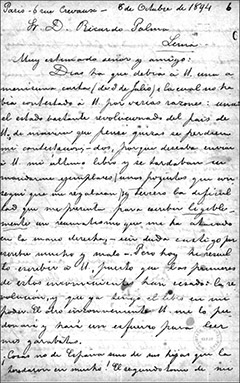 Paris - 6 rue Crevaux - 6 de Octubre de 1894
6
Sr. D. Ricardo Palma
Lima
Muy estimado señor y amigo:
Dias ha que debia á U. una a-
menisima carta (de 3 de Julio) á la cual no ha
bia contestado á U. por varias razones: una:
el estado bastante revolucionado del país de
U., de manera que pensé quizas se perdiera
mi contestacion - dos, porque deseaba enviar
á U. mi ultimo libro y se tardaban en
mandarme ejemplares (unos poquitos que con
seguí que me regalaran) y tercero la dificul
tad que me presenta para escribir legible-
mente un reumatismo que me ha atacado
en la mano derecha, - sin duda castigo por
escribir mucho y mal - Pero hoy he resuel
to escribir á U. puesto que los primeros
de estos inconvenientes han cesado: la re
volucion, y que ya tengo el libro en mi
poder. El otro inconveniente U. me lo per
donará y hará un esfuerzo para leer
mis garabatos.
Como no de España uno de sus hijos que la
honraron en mucho! El segundo tomo de mi